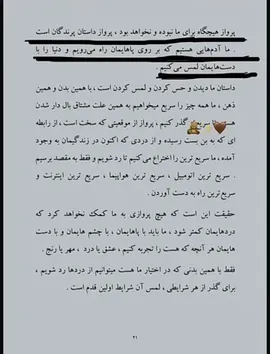 پرواز هیچگاه برای ما نبوده و نخواهد بود ، پرواز داستان پرندگان است
. ما آدم‌هایی هستیم که بر روی پاهایمان راه می‌رویم و دنیا را با
دست‌هایمان لمس می‌کنیم .
داستان ما دیدن و حس کردن و لمس کردن است ، با همین بدن و همین
ذهن ، ما همه چیز را سریع میخواهیم به همین علت مشتاق بال دار شدن
سریع گذر کنیم ، پرواز از موقعیتی که سخت است ، از رابطه
ای که به بن بست رسیده و از دردی که اکنون در زندگیمان به وجود
آمده ، ما سریع ترین را اختراع می‌کنیم تا رد شویم و فقط به مقصد برسیم
. سریع ترین اتومبیل ، سریع ترین هواپیما ، سریع ترین اینترنت و
سریع‌ترین راه به دست آوردن .
حقیقت این است که هیچ پروازی به ما کمک نخواهد کرد که
دردهایمان کمتر شود ، ما باید با پاهایمان ، با چشم هایمان و با دست
هایمان هر آنچه که هست را تجربه کنیم ، عشق یا درد ، مهر یا رنج .
فقط با همین بدنی که در اختیار ما هست میتوانیم از دردها رد شویم ،
برای گذر از هر شرایطی ، لمس آن شرایط اولین قدم است .
۲۱